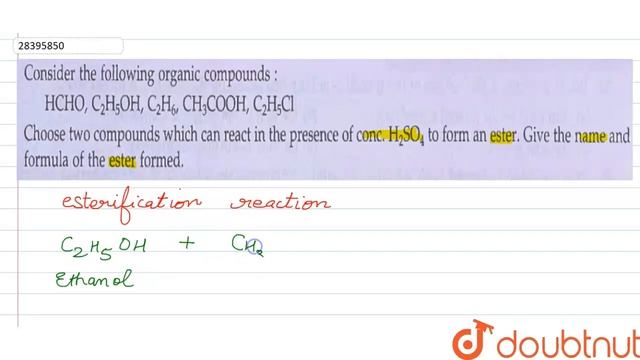 28395850
Consider the following organic compounds :
HCHO, C₂H₅OH, C₂H₆, CH₃COOH, C₂H₅Cl
Choose two compounds which can react in the presence of conc. H₂SO₄ to form an ester. Give the name and
formula of the ester formed.
esterification reaction
C₂H₅OH + CH₃
Ethanol
doubtnut